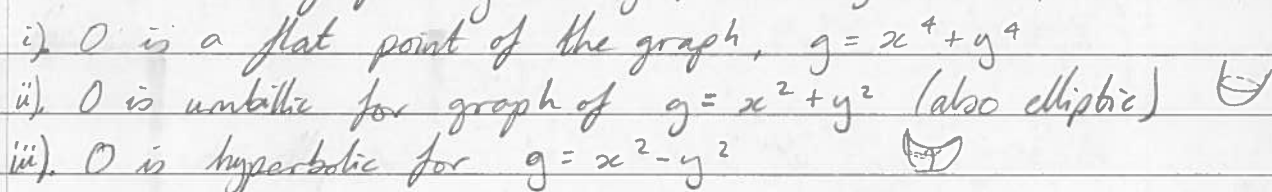 i). O is a flat point of the graph, g = x⁴ + y⁴
ii). O is umbillic for graph of g = x² + y² (also elliptic)
iii). O is hyperbolic for g = x² - y²